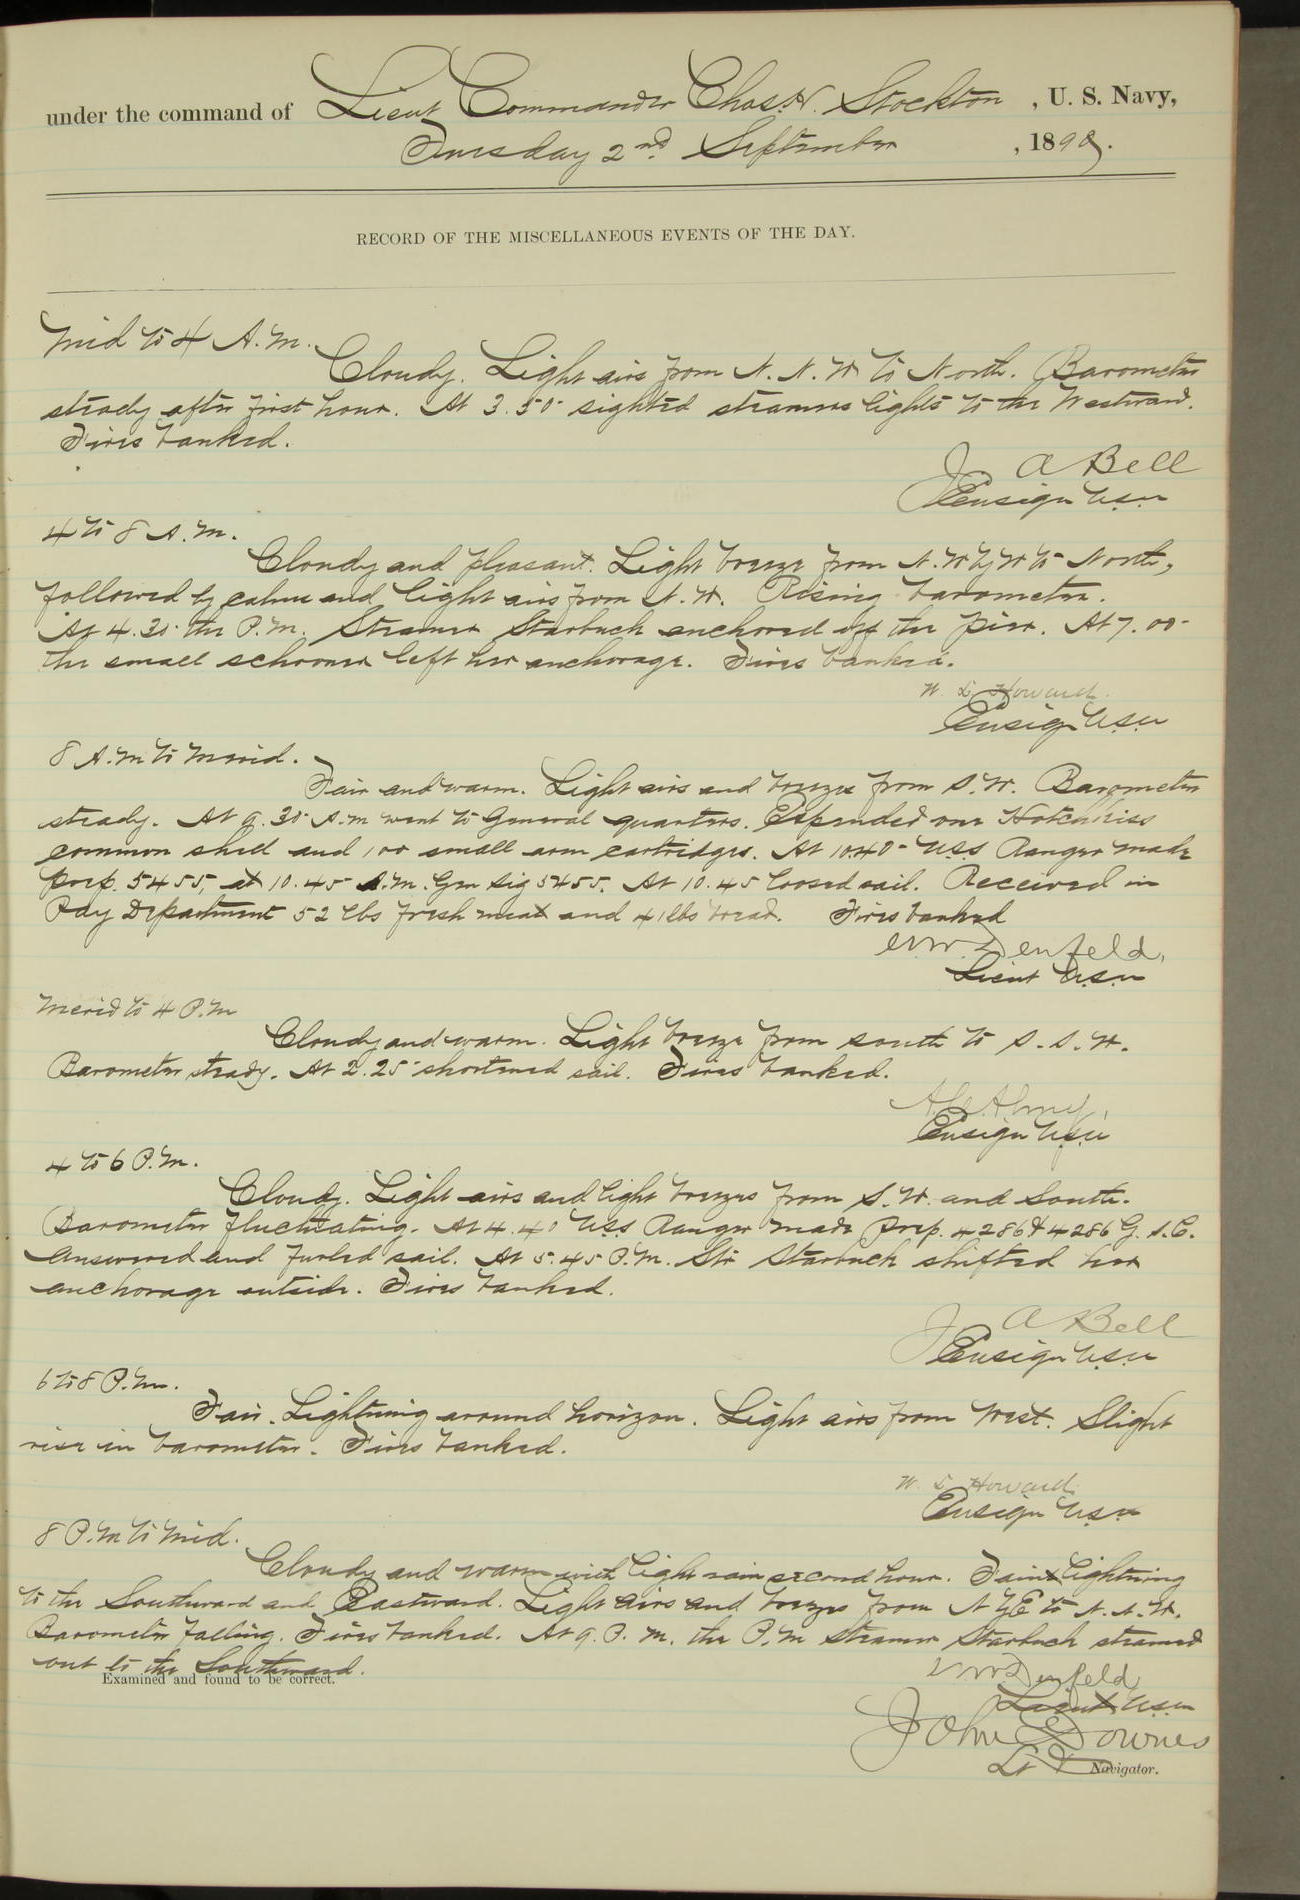 under the command of Lieut Commander Chas. H. Stockton, U. S. Navy,
Tuesday 2nd September, 1890.
RECORD OF THE MISCELLANEOUS EVENTS OF THE DAY.
Mid to 4 A.M.
Cloudy. Light airs from N. N. W to North. Barometer
steady after first hour. At 3.50 sighted steamers lights to the Westward.
Fires banked.
J A Bell
Ensign USN
4 to 8 A.M.
Cloudy and pleasant. Light breeze from N.W by W to North,
followed by calms and light airs from N.W. Rising barometer.
At 4.30 the P.M. Steamer Starbuck anchored off the pier. At 7.00
the small schooner left her anchorage. Fires banked.
W. L. Howard.
Ensign USN
8 A.M to Merid.
Fair and warm. Light airs and breezes from S.W. Barometer
steady. At 9.30 A.M went to General quarters. Expended one Hotchkiss
common shell and 100 small arm cartridges. At 10.40 USS Ranger made
prep. 5455, at 10.45 A.M. Gen Sig 5455. At 10.45 loosed sail. Received in
Pay Department 52 lbs fresh meat and 41 lbs bread. Fires banked
Denfeld,
Lieut USN
Merid to 4 P.M
Cloudy and warm. Light breeze from south to S.S.W.
Barometer steady. At 2.25 shortened sail. Fires banked.
Almy,
Ensign USN
4 to 6 P.M.
Cloudy. Light airs and light breezes from S.W. and South.
Barometer fluctuating. At 4.40 USS Ranger made prep. 4286 & 4286 G.S.C.
Answered and furled sail. At 5.45 P.M. Str Starbuck shifted her
anchorage outside. Fires banked.
J A Bell
Ensign USN
6 to 8 P.M.
Fair. Lightning around horizon. Light airs from West. Slight
rise in barometer. Fires banked.
W. L. Howard
Ensign USN
8 P.M to Mid.
Cloudy and warm with light rain second hour. Faint lightning
to the Southward and Eastward. Light airs and breezes from N by E to N.N.W.
Barometer falling. Fires banked. At 9.P.M. the P.M Steamer Starbuck steamed
out to the Southward.
Examined and found to be correct.
Denfeld
Lieut USN
John Downes
Lt & Navigator.